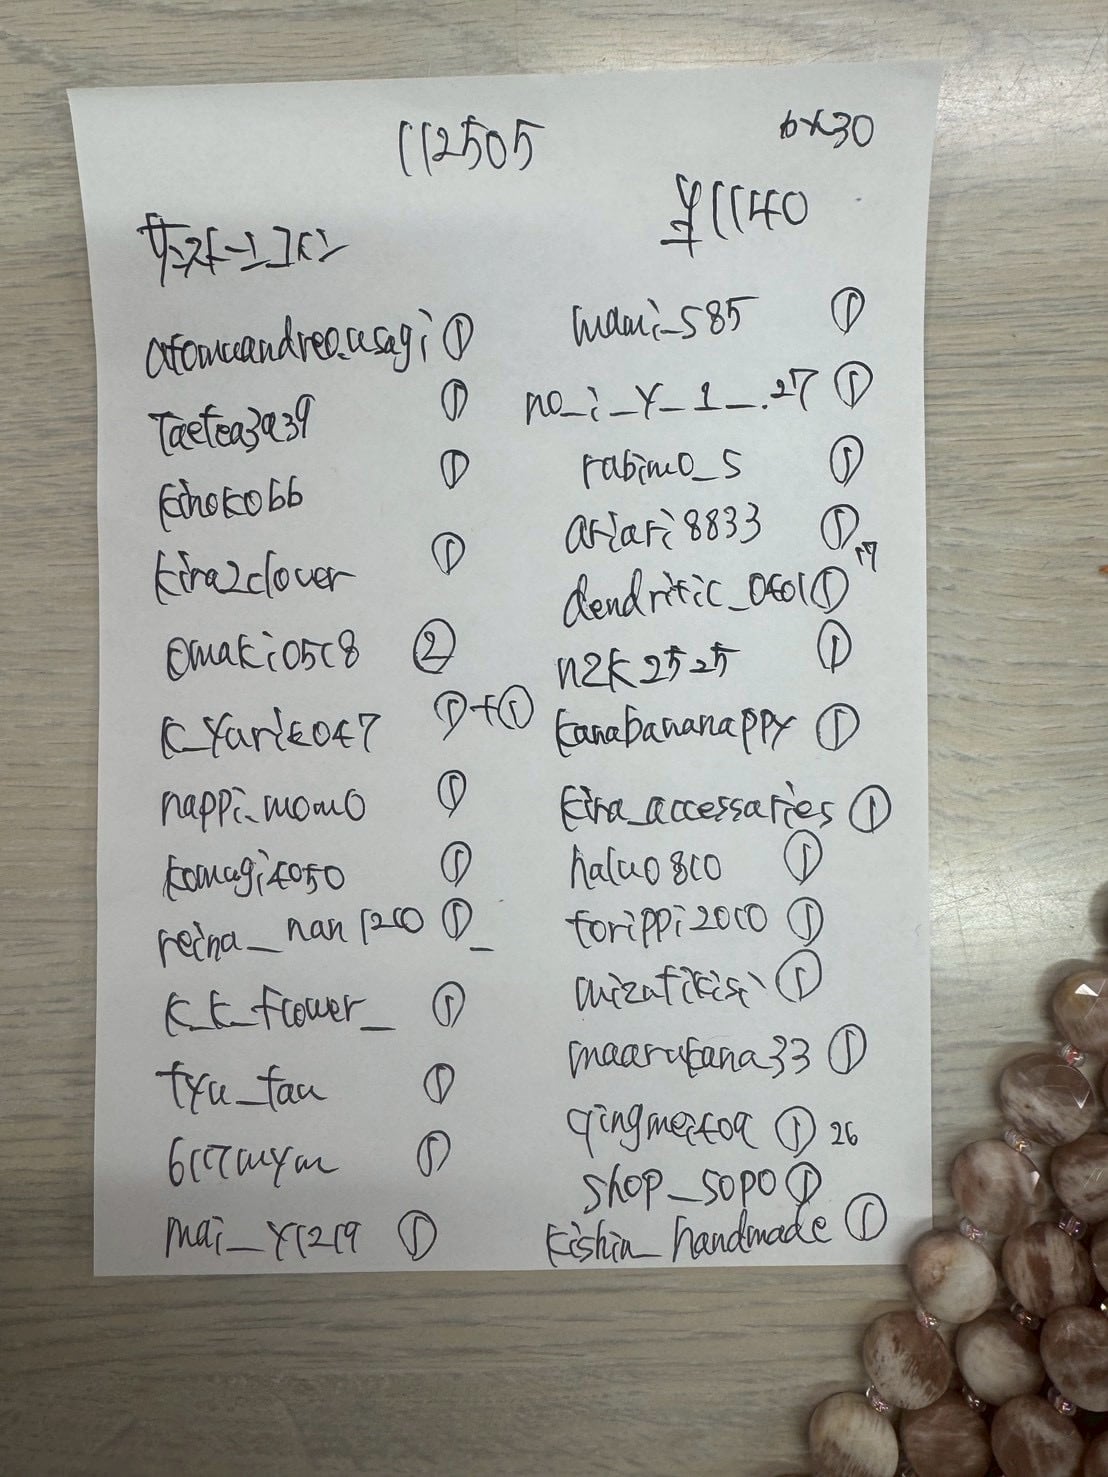 112505
6x30
¥1140
サンストーンコイン
atomuandreo.usagi ①
taetea3a39 ①
kinoko66 ①
kira2clover ①
omaki0518 ②
k_yuriko47 ①+①
nappi_momo ①
komugi4050 ①
reina_nan1200 ①_
k_k_flower_ ①
tyu_tau ①
6117mym ①
mai_y1219 ①
mami_585 ①
no_i_y_1_.27 ①
rabimo_s ①
ariari8833 ①
17
dendritic_0401 ①
n2k2525 ①
kanabananappy ①
kira_accessaries ①
halu0810 ①
torippi2010 ①
mizutikisi ①
maarukana33 ①
qingmei409 ① 26
shop_sopo ①
kishin_handmade ①